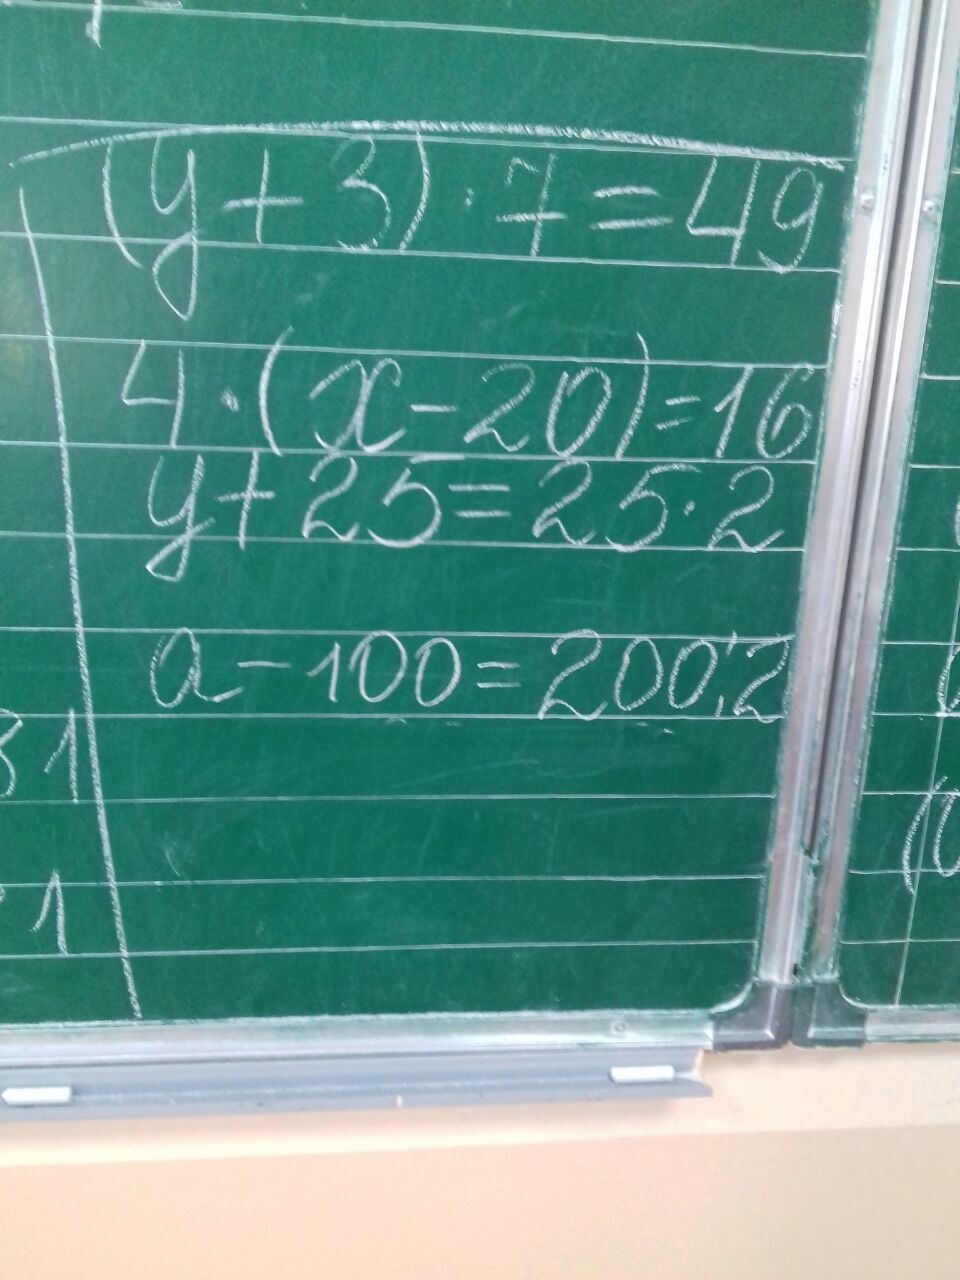 (y + 3) · 7 = 49
4 · (x - 20) = 16
y + 25 = 25 · 2
a - 100 = 200 : 2
31
1